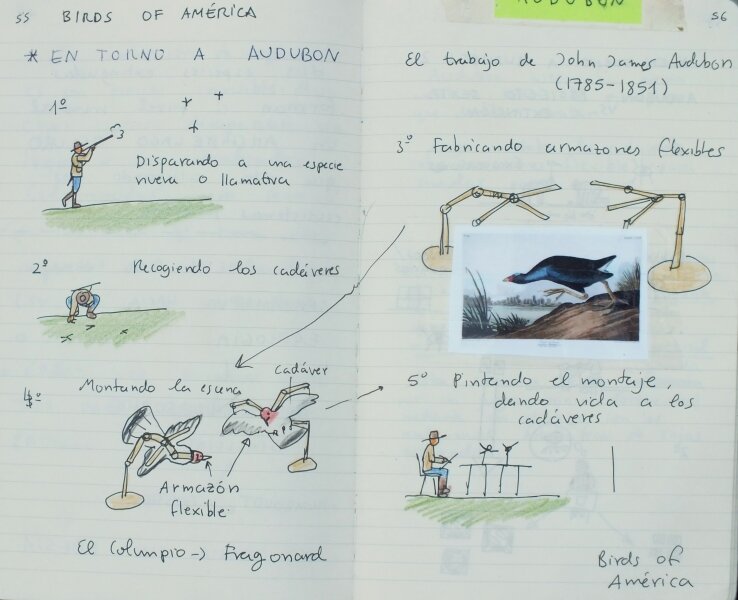 55 BIRDS OF AMÉRICA
* EN TORNO A AUDUBON
1º
Disparando a una especie
nueva o llamativa
2º Recogiendo los cadáveres
4º Montando la escena
Cadáver
Armazón
flexible.
El Columpio -> Fragonard
AUDUBON
56
El trabajo de John James Audubon
(1785-1851)
3º Fabricando armazones flexibles
5º Pintando el montaje,
dando vida a los
cadáveres
Birds of
América